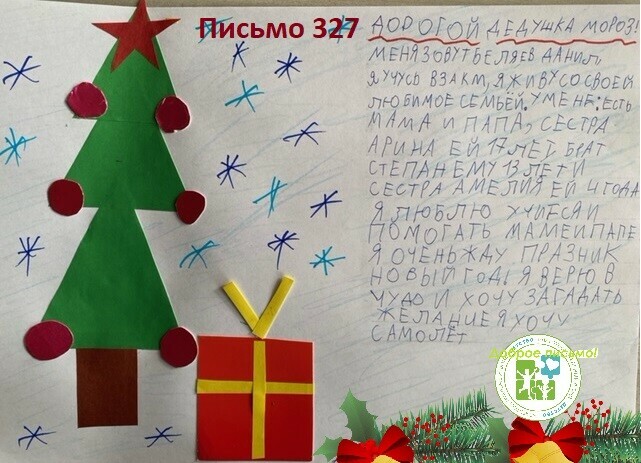 Письмо 327
ДОРОГОЙ ДЕДУШКА МОРОЗ!
МЕНЯ ЗОВУТ БЕЛЯЕВ ДАНИЛ,
Я УЧУСЬ В 3 А КЛ, Я ЖИВУ СО СВОЕЙ
ЛЮБИМОЕ СЕМЬЁЙ. У МЕ НЕ: ЕСТЬ
МАМА И ПАПА, СЕСТРА
АРИНА ЕЙ 17 ЛЕТ БРАТ
СТЕПАН ЕМУ 13 ЛЕТ И
СЕСТРА АМЕЛИЯ ЕЙ 4 ГОДА
Я ЛЮБЛЮ УЧИТСЯ И
ПОМОГАТЬ МАМЕ И ПАПЕ
Я ОЧЕНЬ ЖДУ ПРАЗНИК
НОВЫЙ ГОД! Я ВЕРЮ В
ЧУДО И ХОЧУ ЗАГАДАТЬ
ЖЕЛАНИЕ Я ХОЧУ
САМОЛЁТ
Доброе письмо!